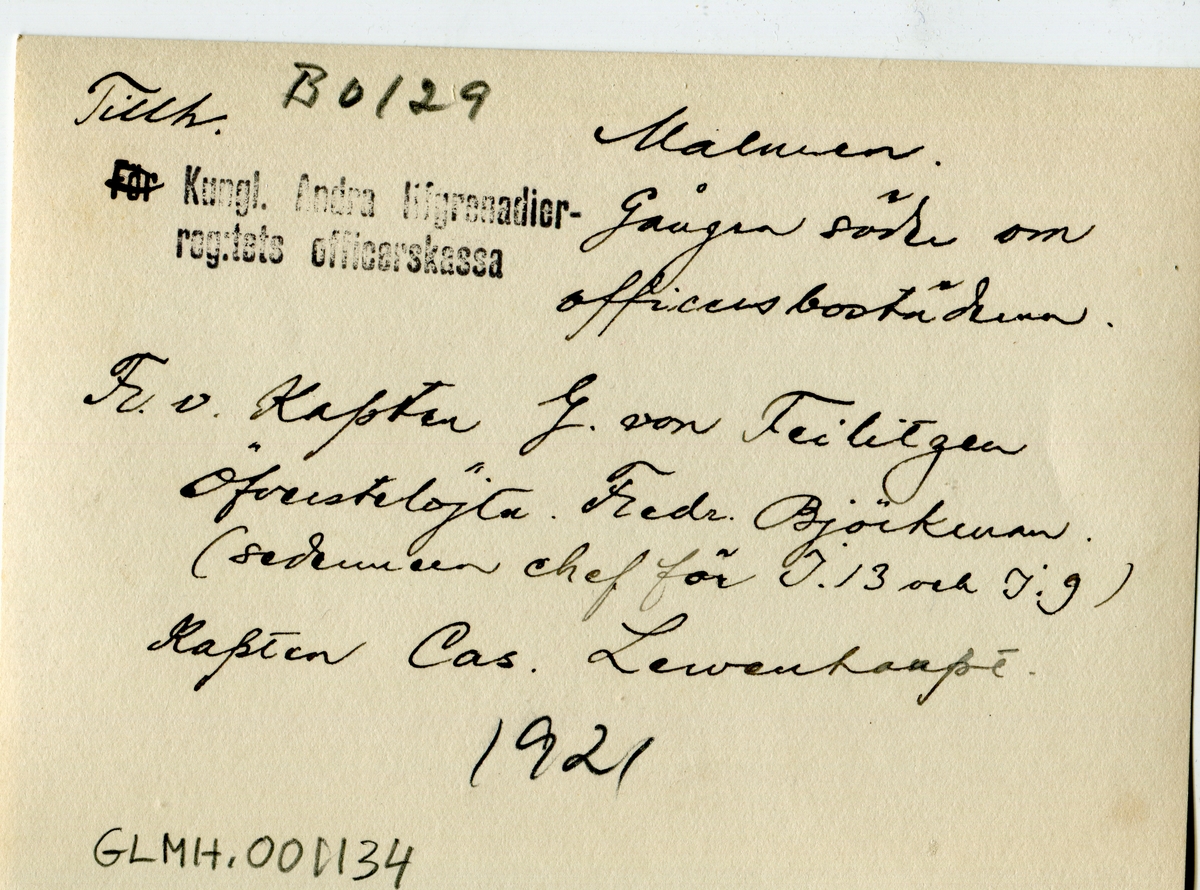 B0129
Tillh.
För Kungl. Andra lifgrenadier-
reg:tets officerskassa
Malmen.
Gången söder om
officersbostäderna.
Fr. v. Kapten G. von Feilitzen
Öfverstelöjtn. Fredr. Björkman.
(sedermera chef för I.13 och I.9)
Kapten Cas. Lewenhaupt.
1921
GLMH.001134